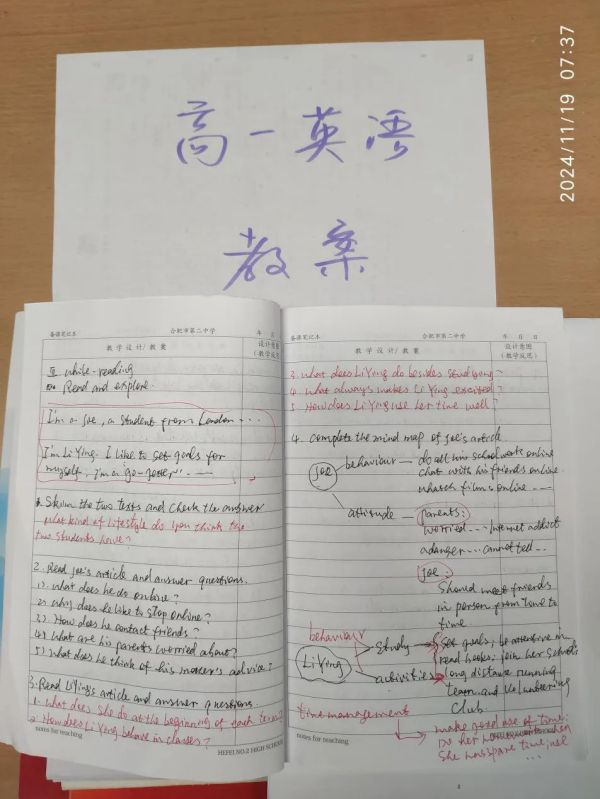 2024/11/19 07:37
高一英语
教案
备课笔记本 合肥市第二中学 年 月
教学设计/教案 设计意图
(教学反思)
while-reading
Read and explore.
I'm a Joe, a student from London ....
I'm Li Ying. I like to set goals for
myself, I'm a "go-getter" ...
Skim the two texts and check the answer
What kind of lifestyle do you think the
two students have?
2. Read Joe's article and answer questions.
1) What does he do online?
2) Why does he like to shop online?
3) How does he contact friends?
4) What are his parents worried about?
5) What does he think of his mother's advice?
3. Read LiYing's article and answer questions.
1. What does she do at the beginning of each term?
2. How does LiYing behave in classes?
notes for teaching
HEFEI NO.2 HIGH SCHOOL
备课笔记本 合肥市第二中学 年 月 日
教学设计/教案 设计意图
(教学反思)
3. What does LiYing do besides studying?
4. What always makes LiYing excited?
5. How does LiYing use her time well?
4. Complete the mind map of Joe's article
Joe
behaviour — do all his school work online
chat with his friends online
watch films online ...
attitude — parents:
worried ... Internet addict
a danger ... cannot tell ..
Joe:
Should meet friends
in person from time to
time
behaviour
LiYing
study
set goals; be attentive in
read books; join her school
activities
long distance running
team and Volunteering
Club
time management
make good use of time:
she has spare time, use
...
notes for teaching